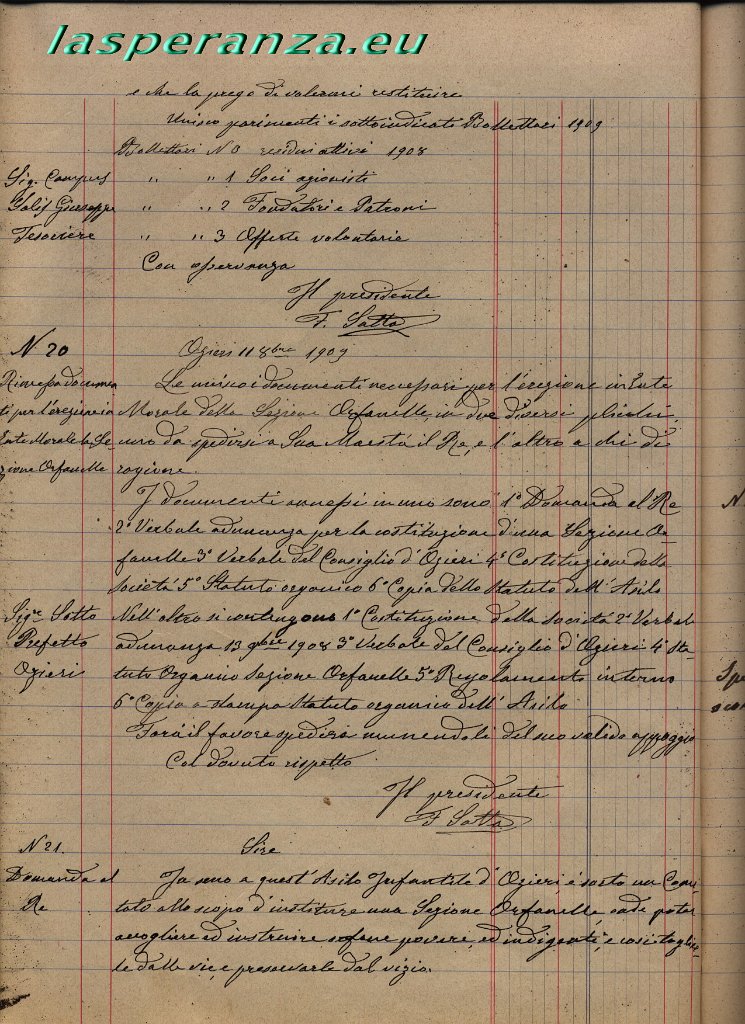 lasperanza.eu
e che la prego di volermi restituire
Unisco parimenti i sottoindicati Bollettari 1909
Bollettari N 3 residui attivi 1908
Sig. Campus " " 1 Soci azionisti
Salis Giuseppe " " 2 Fondatori e Patroni
Tesoriere " " 3 Offerte volontarie
Con osservanza
Il presidente
F. Satta
N 20 Ozieri 11 8bre 1909
Rimessa documen Le unisco i documenti necessari per l'erezione in Ente
ti per l'erezione in Morale della Sezione Orfanelle, in due diversi plichi,
Ente Morale la Se- uno da spedirsi a Sua Maestá il Re, e l'altro a chi di
zione Orfanelle ragione.
I documenti annessi in uno sono 1º Domanda al Re
2º Verbale adunanza per la costituzione d'una Sezione Or-
fanelle 3º Verbale del Consiglio d'Ozieri 4º Costituzione della
Societá 5º Statuto organico 6º Copia dello Statuto dell'Asilo
Sigr Sotto Nell'altro si contengono 1º Costituzione della societá 2º Verbale
Prefetto adunanza 13 9bre 1908 3º Verbale del Consiglio d'Ozieri 4º Sta-
Ozieri tuto Organico Sezione Orfanelle 5º Regolamento interno
6º Copia a stampa Statuto organico dell'Asilo
Fará il favore spedirli munendoli del suo valido appoggio
Col dovuto rispetto
Il presidente
F Satta
N 21. Sire
Domanda al In seno a quest'Asilo Infantile d'Ozieri é sorto un Comi-
Re tato allo scopo d'instituire una Sezione Orfanelle, onde poter
accogliere ed instruire orfane povere, ed indigenti, e cosí toglier-
le dalle vie, e preservarle dal vizio.
N.